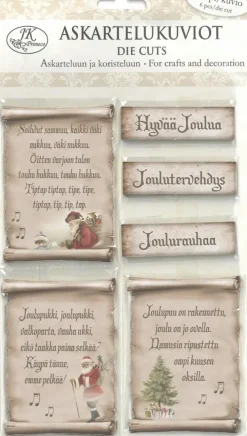 JK
Primeco
6 pcs/die cut
ASKARTELUKUVIOT
DIE CUTS
Askarteluun ja koristeluun - For crafts and decoration
Soihdut sammuu, kaikki väki
nukkuu, väki nukkuu.
Oitten varjoon talon
touhu hukkuu, touhu hukkuu.
Tiptap tiptap, tipe, tipe,
tiptap, tip, tip, tap.
Hyvää Joulua
Joulutervehdys
Joulurauhaa
Joulupukki, joulupukki,
valkoparta, vanha ukki,
eikö taakka paina selkää?
Käypä tänne,
emme pelkää!
Joulupuu on rakennettu,
joulu on jo ovella.
Namusia ripustettu
ompi kuusen
oksilla.